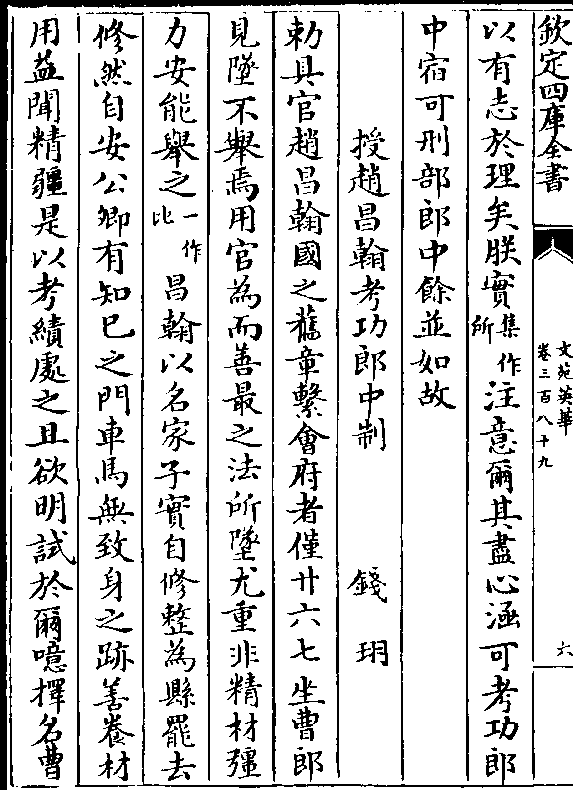 欽定四庫全書
文苑英華
卷三百八十九
六
以有志於理矣朕實集作所注意爾其盡心涵可考功郎
中宿可刑部郎中餘並如故
授趙昌翰考功郎中制
錢珝
勅具官趙昌翰國之舊章繫會府者僅廿六七坐曹郎
見墜不舉焉用官為而善最之法所墜尤重非精材彊
力安能舉之一作比昌翰以名家子實自修整為縣罷去
修然自安公卿有知已之門車馬無致身之跡善養材
用益聞精彊是以考績處之且欲明試於爾噫擇名曹